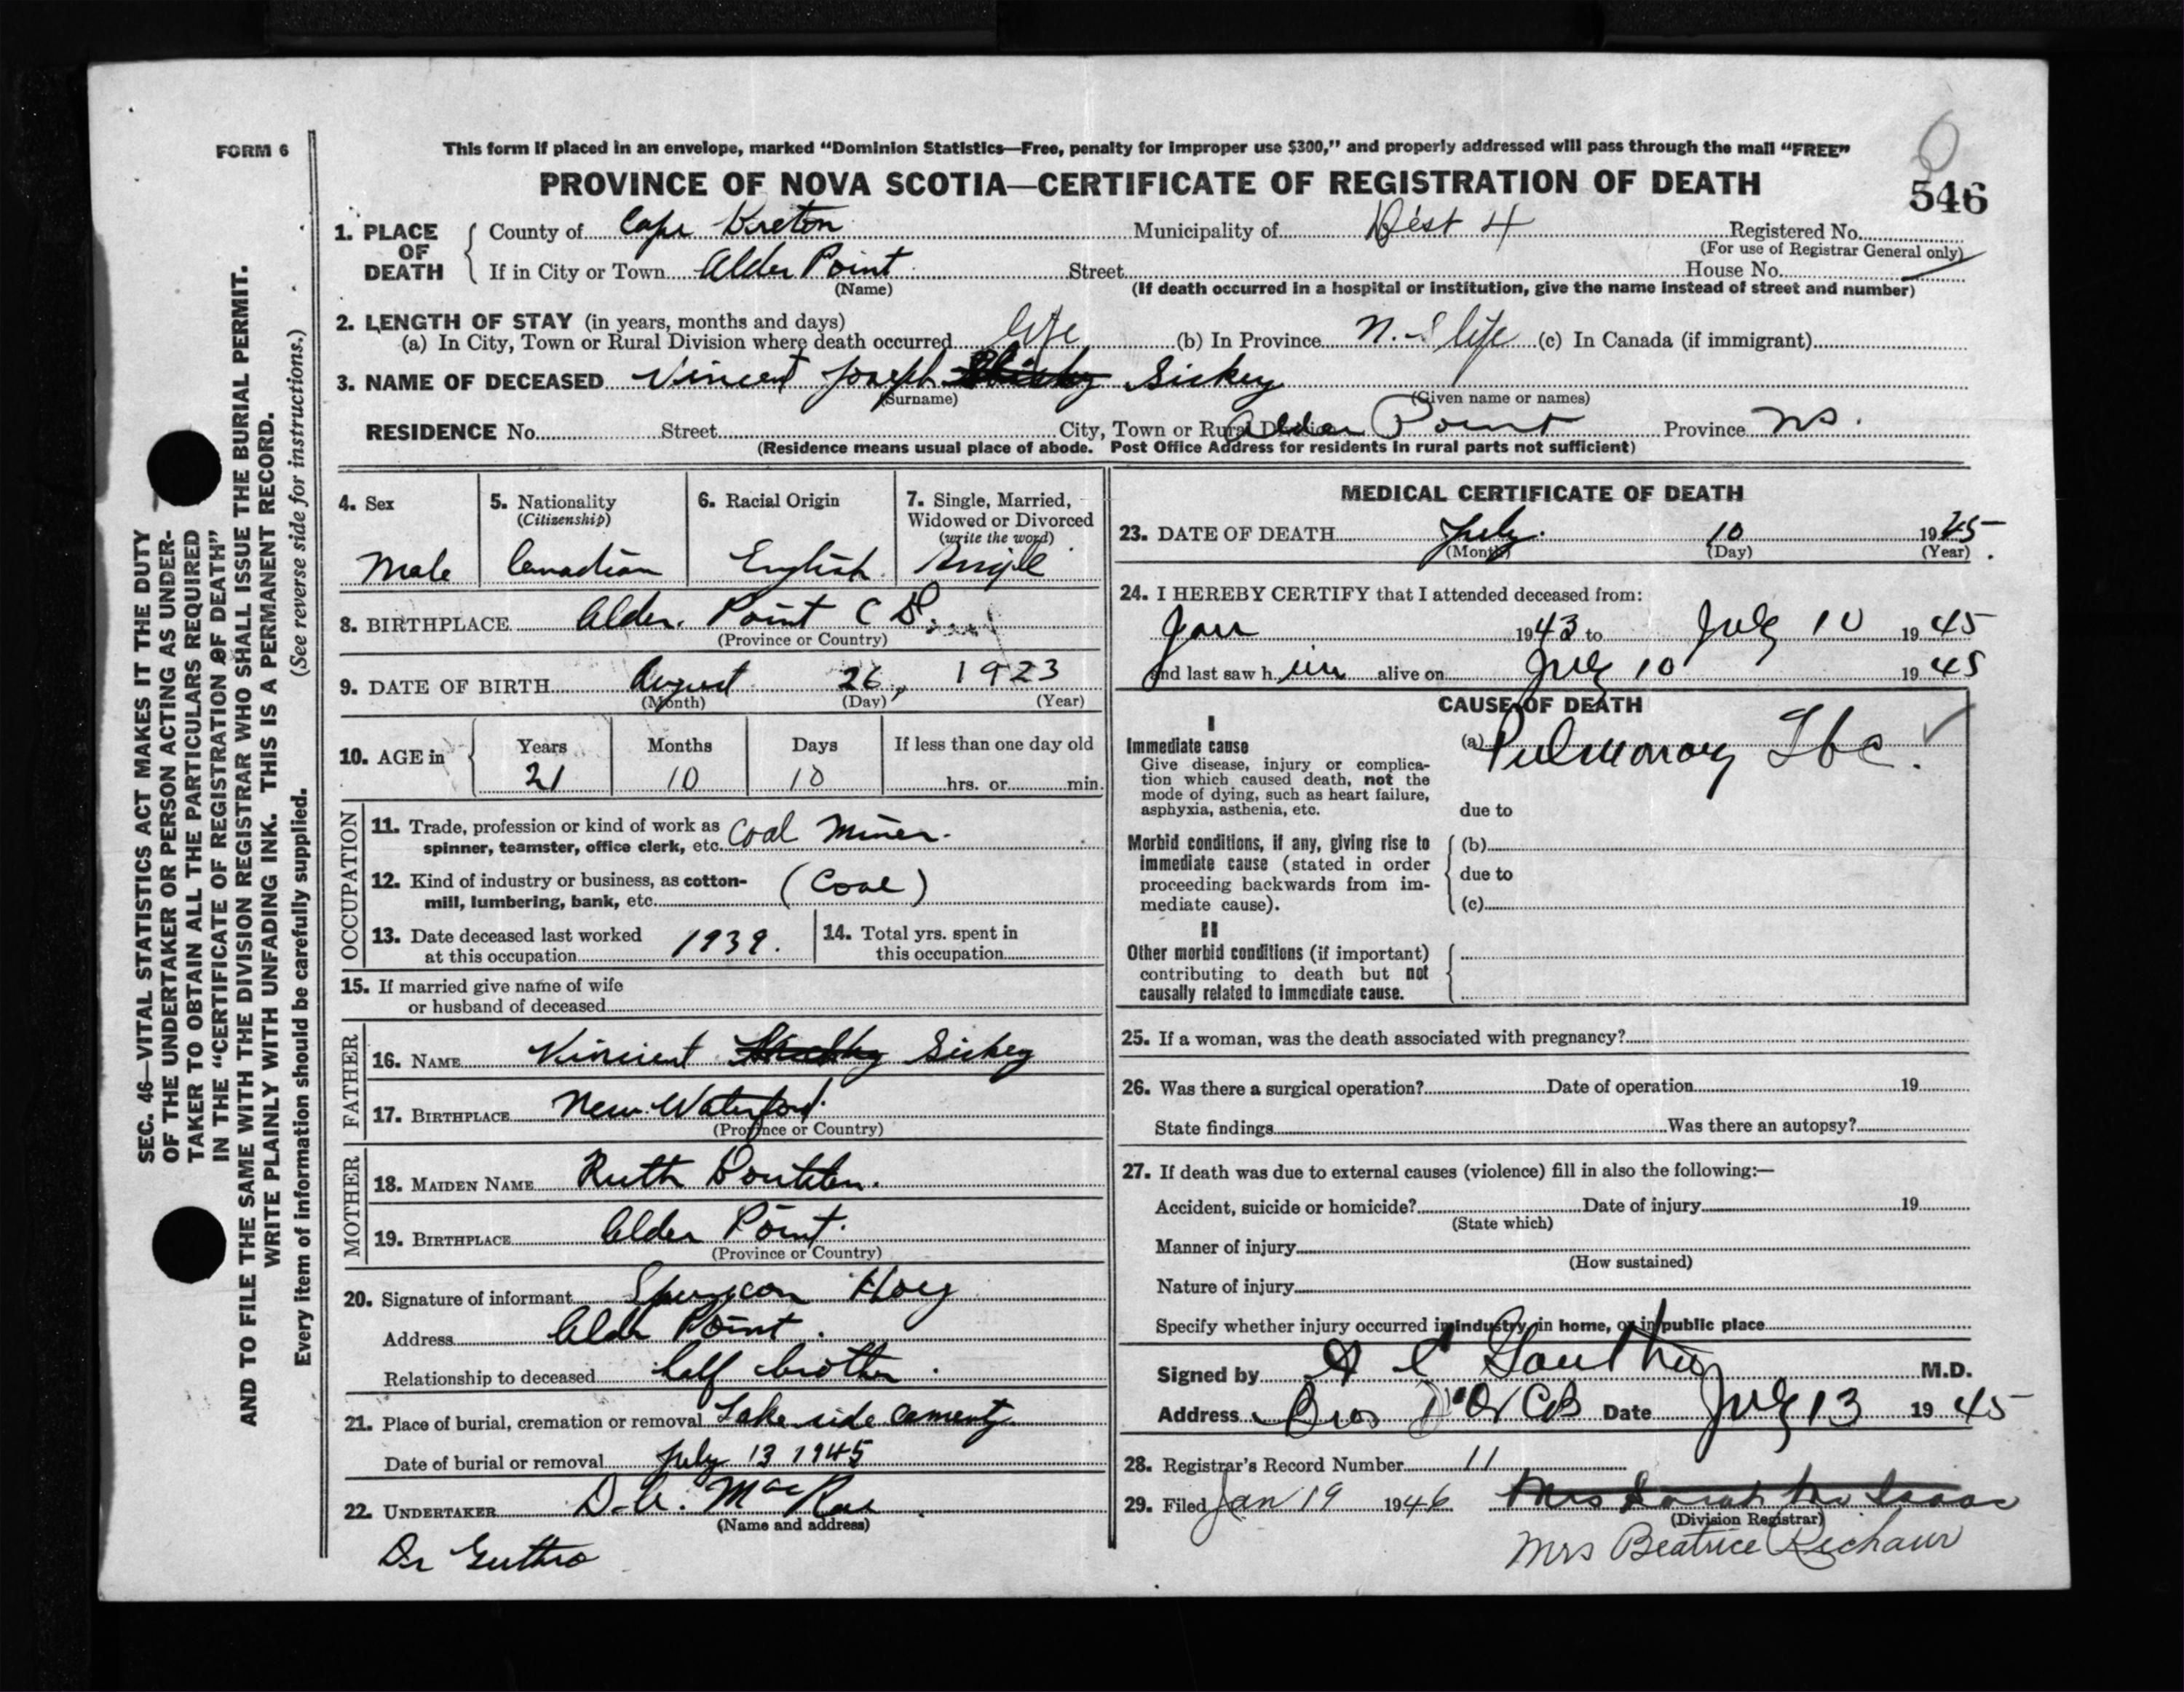 FORM 6
This form if placed in an envelope, marked “Dominion Statistics—Free, penalty for improper use $300,” and properly addressed will pass through the mail “FREE”
PROVINCE OF NOVA SCOTIA—CERTIFICATE OF REGISTRATION OF DEATH
546
1. PLACE OF DEATH
County of Cape Breton Municipality of Dist 4 Registered No.
(For use of Registrar General only)
If in City or Town Alder Point Street House No.
(Name) (If death occurred in a hospital or institution, give the name instead of street and number)
2. LENGTH OF STAY (in years, months and days)
(a) In City, Town or Rural Division where death occurred life (b) In Province N.S life (c) In Canada (if immigrant)
3. NAME OF DECEASED Vincent Joseph Sickey
(Surname) (Given name or names)
RESIDENCE No. Street City, Town or Rural Division Alder Point Province NS.
(Residence means usual place of abode. Post Office Address for residents in rural parts not sufficient)
4. Sex
Male
5. Nationality
(Citizenship)
Canadian
6. Racial Origin
English
7. Single, Married,
Widowed or Divorced
(write the word)
Single
8. BIRTHPLACE Alder Point C B.
(Province or Country)
9. DATE OF BIRTH August 26, 1923
(Month) (Day) (Year)
10. AGE in
Years Months Days If less than one day old
21 10 10 hrs. or min.
OCCUPATION
11. Trade, profession or kind of work as
spinner, teamster, office clerk, etc. Coal Miner.
12. Kind of industry or business, as cotton-
mill, lumbering, bank, etc. (Coal)
13. Date deceased last worked
at this occupation 1939.
14. Total yrs. spent in
this occupation
15. If married give name of wife
or husband of deceased
FATHER
16. NAME Vincient Sickey
17. BIRTHPLACE New Waterford.
(Province or Country)
MOTHER
18. MAIDEN NAME Ruth
19. BIRTHPLACE Alder Point.
(Province or Country)
20. Signature of informant Spurgeon Hoey
Address Alder Point.
Relationship to deceased half brother.
21. Place of burial, cremation or removal Lakeside Cementy
Date of burial or removal July 13 1945
22. UNDERTAKER MacRae
(Name and address)
Dr Guthro
MEDICAL CERTIFICATE OF DEATH
23. DATE OF DEATH July. 10 1945
(Month) (Day) (Year)
24. I HEREBY CERTIFY that I attended deceased from:
Jan 1943 to July 10 1945
and last saw him alive on July 10 1945
CAUSE OF DEATH
I
Immediate cause
Give disease, injury or complica-
tion which caused death, not the
mode of dying, such as heart failure,
asphyxia, asthenia, etc.
(a) Pulmonary Tbc.
due to
Morbid conditions, if any, giving rise to
immediate cause (stated in order
proceeding backwards from im-
mediate cause).
(b)
due to
(c)
II
Other morbid conditions (if important)
contributing to death but not
causally related to immediate cause.
25. If a woman, was the death associated with pregnancy?
26. Was there a surgical operation? Date of operation 19
State findings Was there an autopsy?
27. If death was due to external causes (violence) fill in also the following:—
Accident, suicide or homicide? Date of injury 19
(State which)
Manner of injury
(How sustained)
Nature of injury
Specify whether injury occurred in industry, in home, or in public place
Signed by A C Gouthro M.D.
Address Bras D'Or CB Date July 13 1945
28. Registrar's Record Number 11
29. Filed Jan 19 1946 Mrs Sarah McIsaac
(Division Registrar)
Mrs Beatrice
SEC. 46—VITAL STATISTICS ACT MAKES IT THE DUTY
OF THE UNDERTAKER OR PERSON ACTING AS UNDER-
TAKER TO OBTAIN ALL THE PARTICULARS REQUIRED
IN THE “CERTIFICATE OF REGISTRATION OF DEATH”
AND TO FILE THE SAME WITH THE DIVISION REGISTRAR WHO SHALL ISSUE THE BURIAL PERMIT.
WRITE PLAINLY WITH UNFADING INK. THIS IS A PERMANENT RECORD.
Every item of information should be carefully supplied. (See reverse side for instructions.)